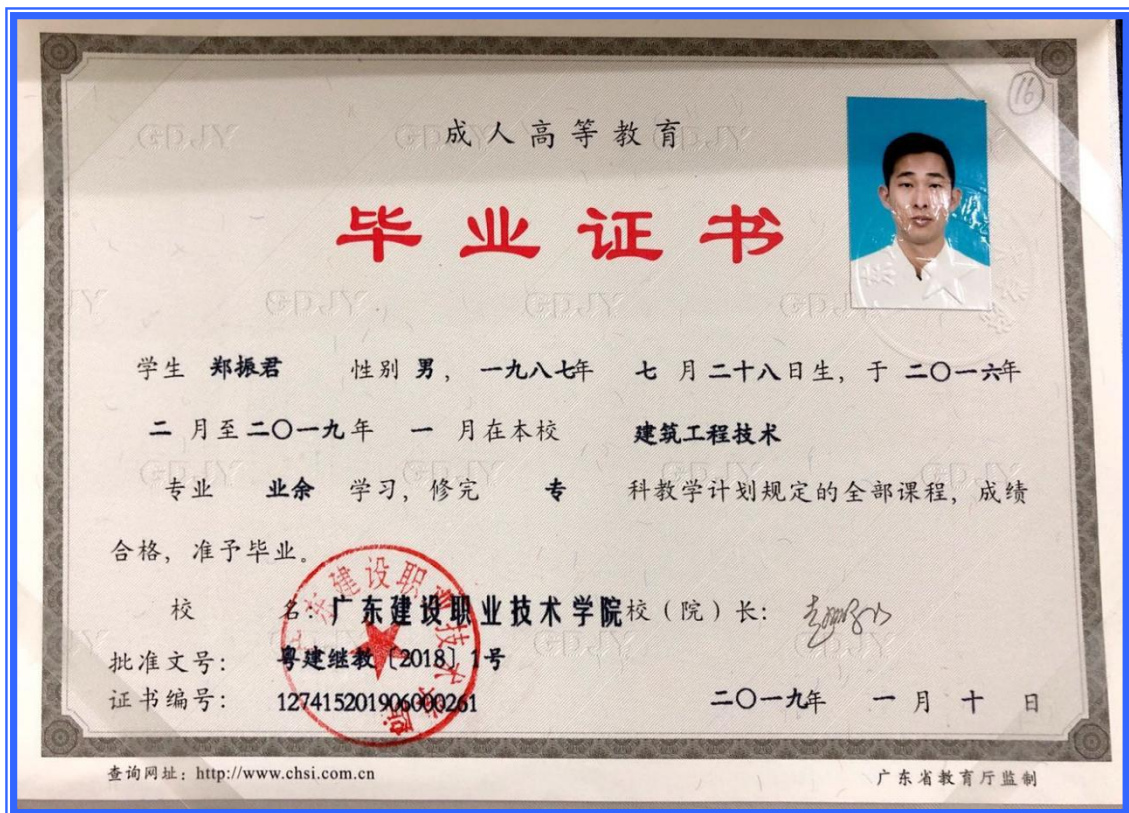 16
成人高等教育
毕业证书
学生 郑振君 性别 男, 一九八七年 七 月 二十八日生, 于 二〇一六年
二 月至 二〇一九年 一 月在本校 建筑工程技术
专业 业余 学习, 修完 专 科教学计划规定的全部课程, 成绩
合格, 准予毕业。
校 名: 广东建设职业技术学院 校（院）长:
批准文号: 粤建继教〔2018〕1号
证书编号: 127415201906000261 二〇一九年 一 月 十 日
广东建设职业技术学院
查询网址: http://www.chsi.com.cn 广东省教育厅监制
GDJY